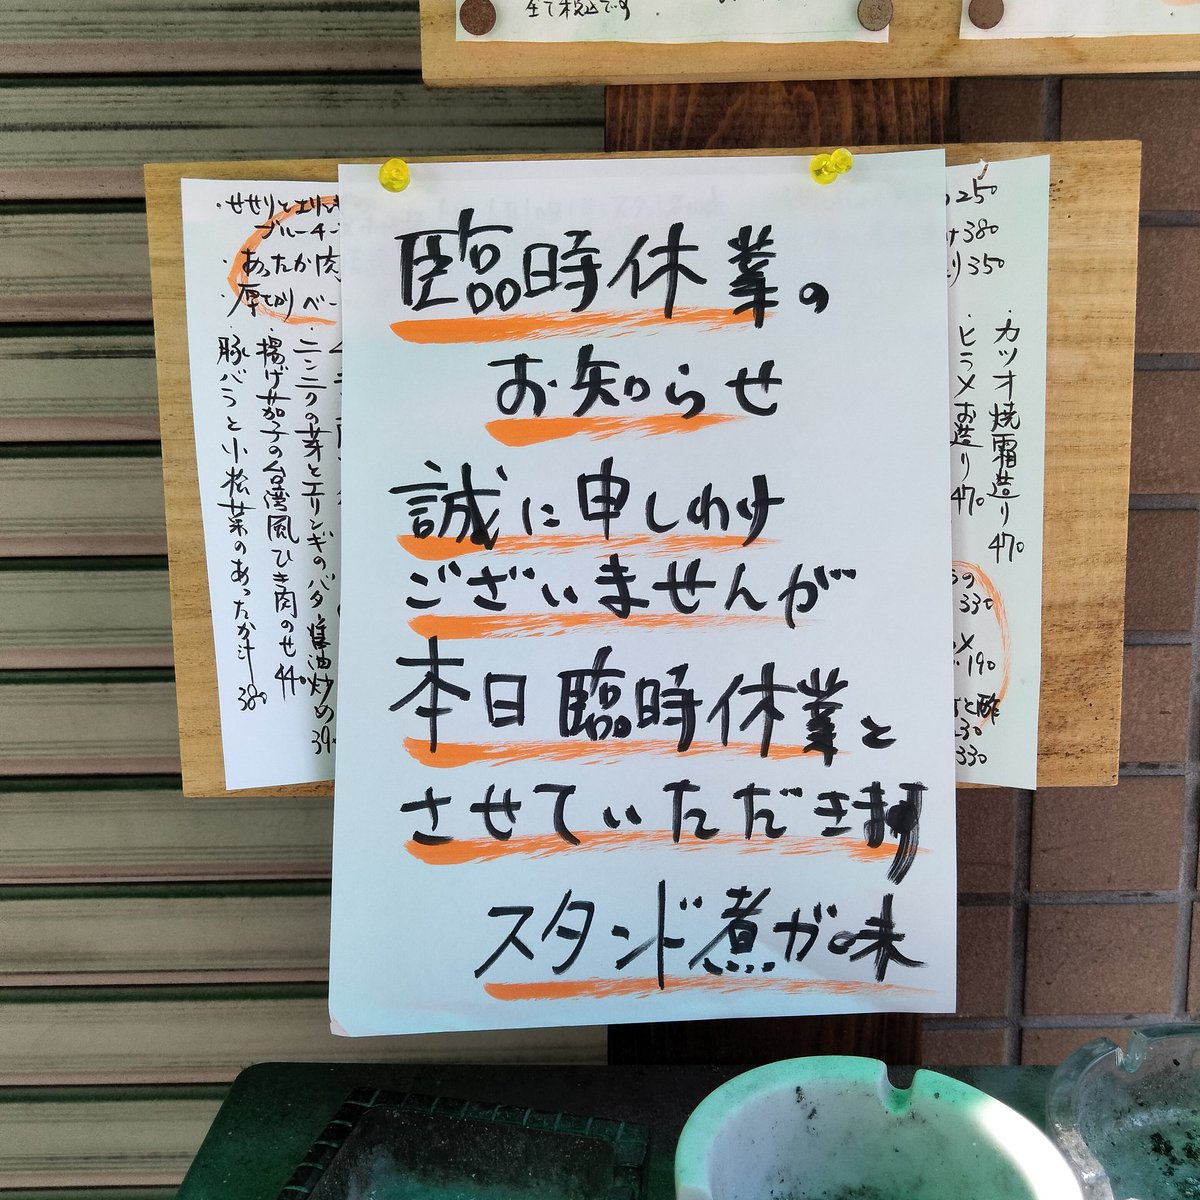 全て税込です
臨時休業の
お知らせ
誠に申しわけ
ございませんが
本日臨時休業と
させていただきます
スタンド煮が味
・あったか肉
・厚切りベー
・ニンニクの芽とエリンギのバター醤油炒め 390
・揚げ茄子の台湾風ひき肉のせ 440
・豚バラと小松菜のあったか汁 380
250
380
り 350
・カツオ焼霜造り 470
・ヒラメお造り 470
330
190
と酢
230
330